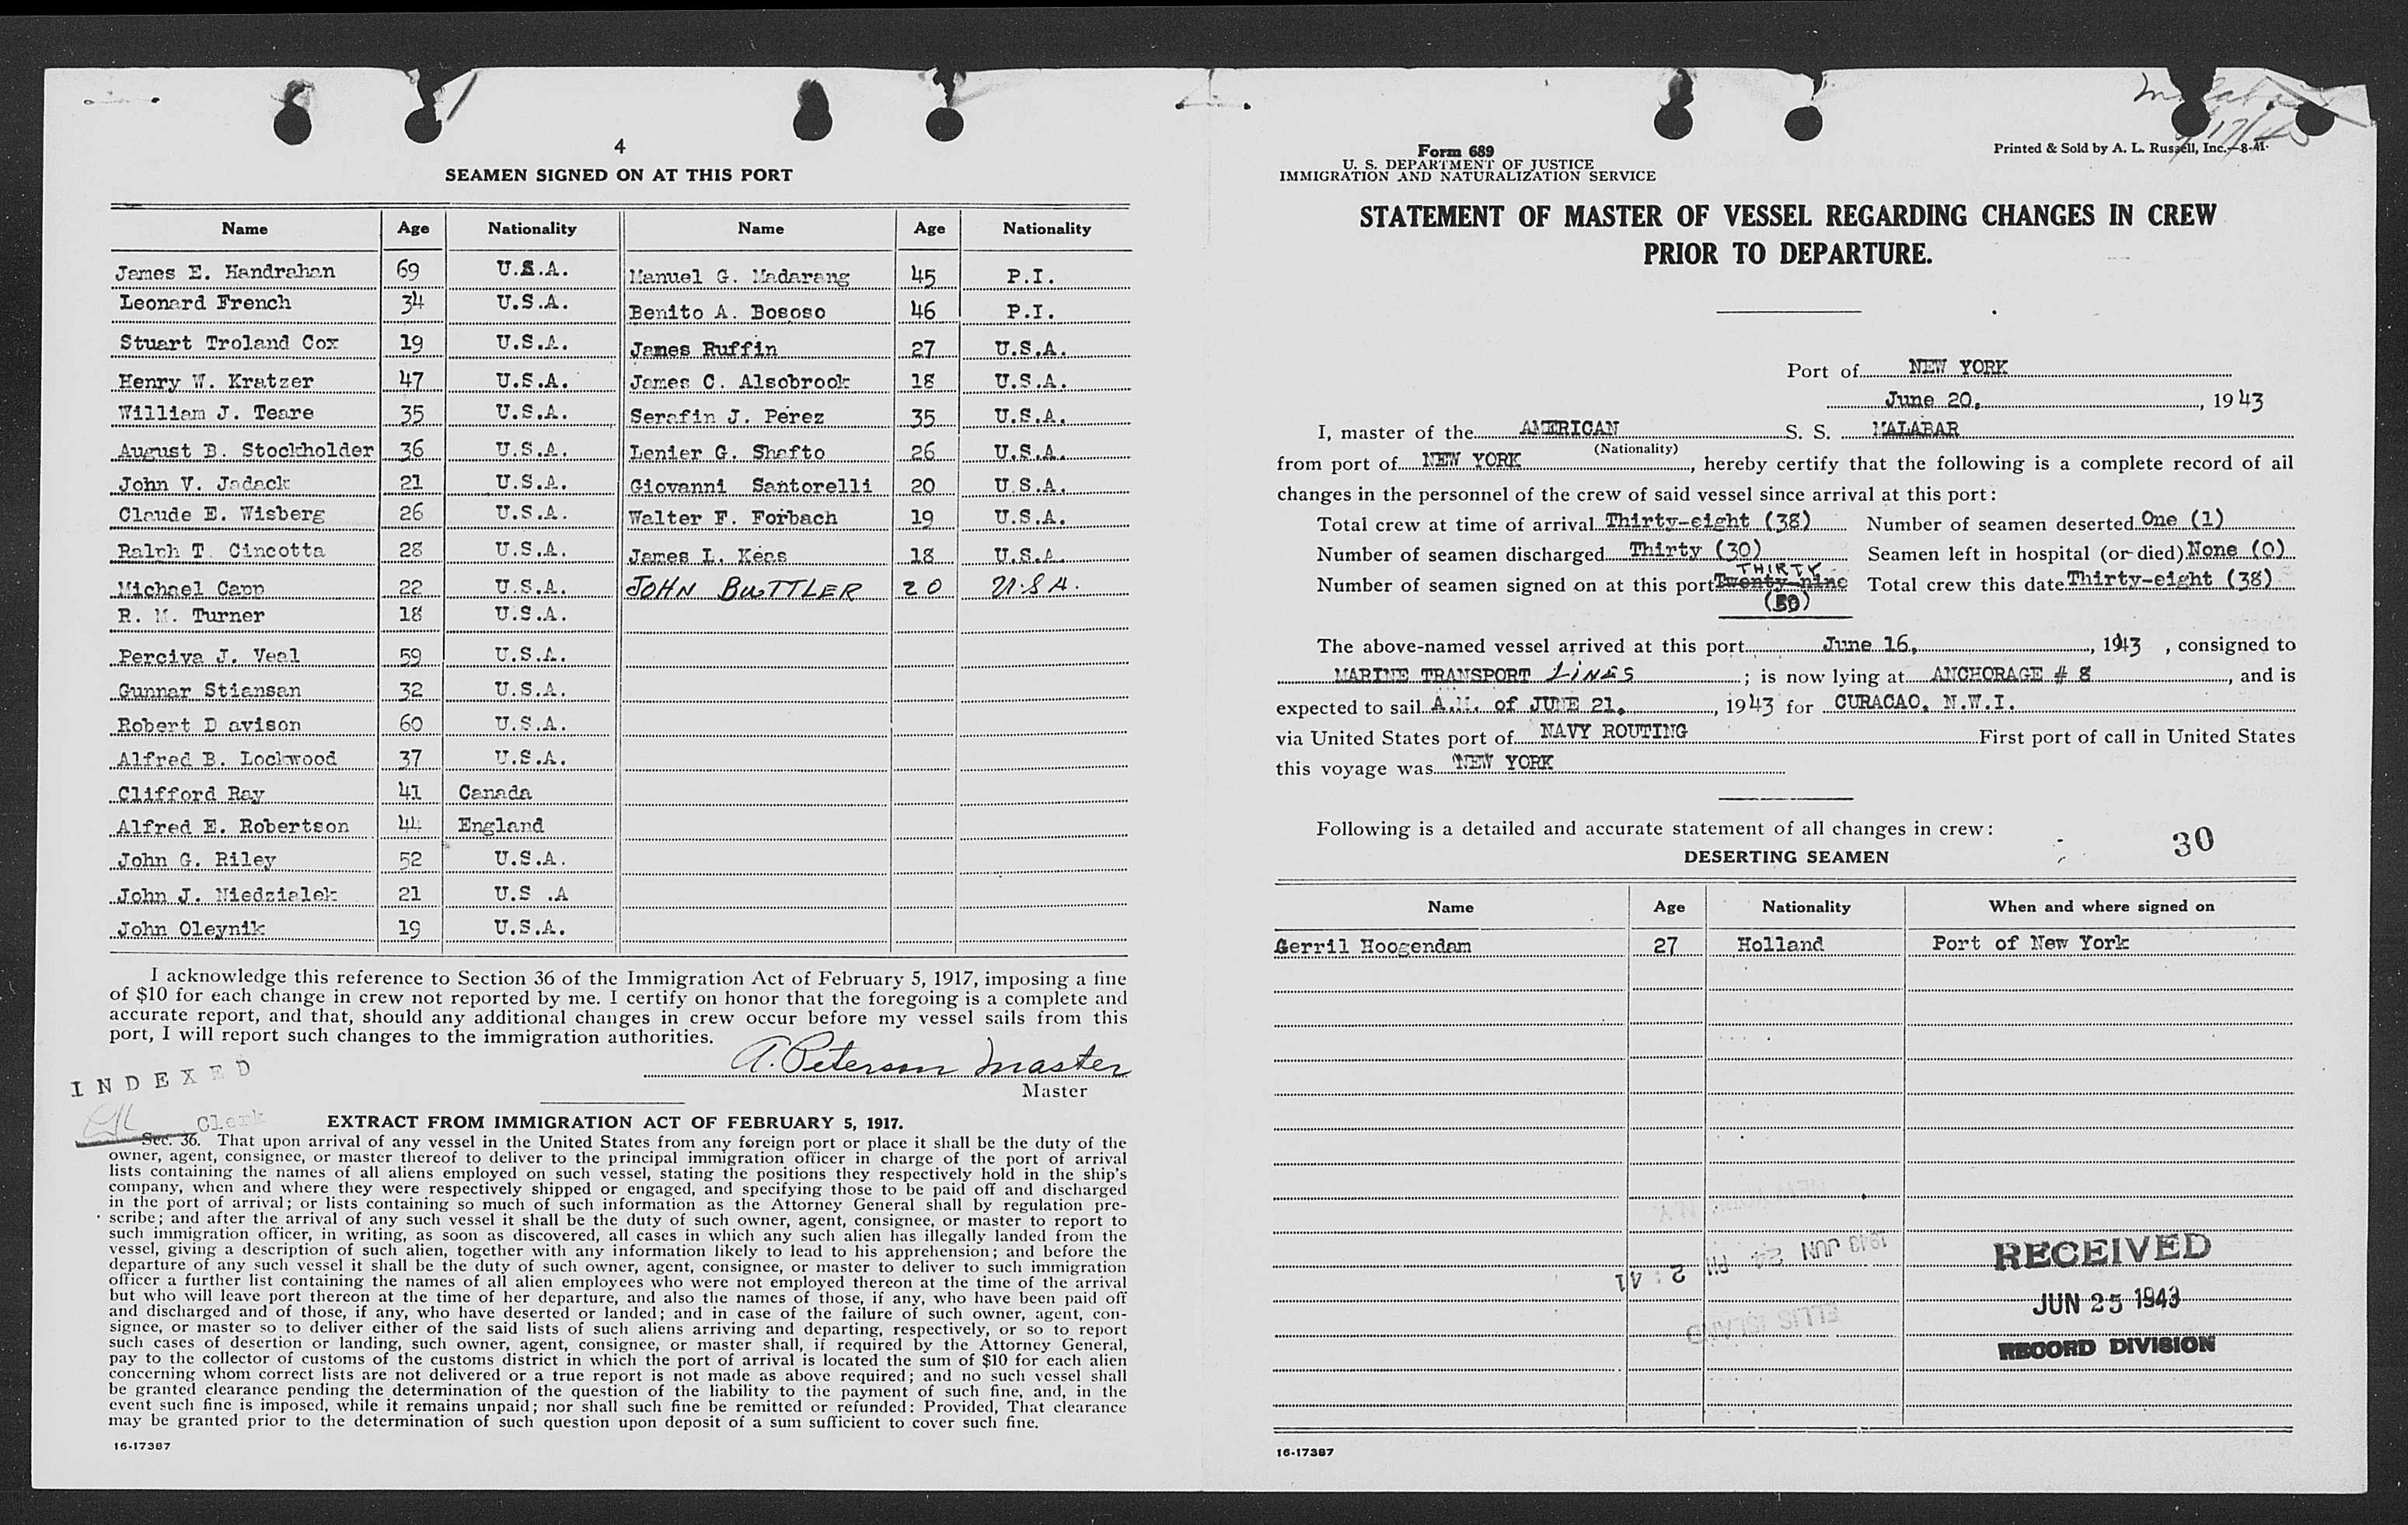 4
SEAMEN SIGNED ON AT THIS PORT
Name Age Nationality Name Age Nationality
James E. Handrahan 69 U.S.A. Manuel G. Madarang 45 P.I.
Leonard French 34 U.S.A. Benito A. Bososo 46 P.I.
Stuart Troland Cox 19 U.S.A. James Ruffin 27 U.S.A.
Henry W. Kratzer 47 U.S.A. James C. Alsobrook 18 U.S.A.
William J. Teare 35 U.S.A. Serafin J. Perez 35 U.S.A.
August B. Stockholder 36 U.S.A. Lenier G. Shafto 26 U.S.A.
John V. Jadack 21 U.S.A. Giovanni Santorelli 20 U.S.A.
Claude E. Wisberg 26 U.S.A. Walter F. Forbach 19 U.S.A.
Ralph T. Cincotta 28 U.S.A. James L. Keas 18 U.S.A.
Michael Capp 22 U.S.A. JOHN BUTTLER 20 U.S.A.
R. M. Turner 18 U.S.A.
Perciva J. Veal 59 U.S.A.
Gunnar Stiansan 32 U.S.A.
Robert D avison 60 U.S.A.
Alfred B. Lockwood 37 U.S.A.
Clifford Ray 41 Canada
Alfred E. Robertson 44 England
John G. Riley 52 U.S.A.
John J. Niedzialek 21 U.S .A
John Oleynik 19 U.S.A.
I acknowledge this reference to Section 36 of the Immigration Act of February 5, 1917, imposing a fine
of $10 for each change in crew not reported by me. I certify on honor that the foregoing is a complete and
accurate report, and that, should any additional changes in crew occur before my vessel sails from this
port, I will report such changes to the immigration authorities.
A. Peterson Master
Master
INDEXED
Clerk
EXTRACT FROM IMMIGRATION ACT OF FEBRUARY 5, 1917.
Sec. 36. That upon arrival of any vessel in the United States from any foreign port or place it shall be the duty of the
owner, agent, consignee, or master thereof to deliver to the principal immigration officer in charge of the port of arrival
lists containing the names of all aliens employed on such vessel, stating the positions they respectively hold in the ship's
company, when and where they were respectively shipped or engaged, and specifying those to be paid off and discharged
in the port of arrival; or lists containing so much of such information as the Attorney General shall by regulation pre-
scribe; and after the arrival of any such vessel it shall be the duty of such owner, agent, consignee, or master to report to
such immigration officer, in writing, as soon as discovered, all cases in which any such alien has illegally landed from the
vessel, giving a description of such alien, together with any information likely to lead to his apprehension; and before the
departure of any such vessel it shall be the duty of such owner, agent, consignee, or master to deliver to such immigration
officer a further list containing the names of all alien employees who were not employed thereon at the time of the arrival
but who will leave port thereon at the time of her departure, and also the names of those, if any, who have been paid off
and discharged and of those, if any, who have deserted or landed; and in case of the failure of such owner, agent, con-
signee, or master so to deliver either of the said lists of such aliens arriving and departing, respectively, or so to report
such cases of desertion or landing, such owner, agent, consignee, or master shall, if required by the Attorney General,
pay to the collector of customs of the customs district in which the port of arrival is located the sum of $10 for each alien
concerning whom correct lists are not delivered or a true report is not made as above required; and no such vessel shall
be granted clearance pending the determination of the question of the liability to the payment of such fine, and, in the
event such fine is imposed, while it remains unpaid; nor shall such fine be remitted or refunded: Provided, That clearance
may be granted prior to the determination of such question upon deposit of a sum sufficient to cover such fine.
16-17387
Malabar
Form 689
U. S. DEPARTMENT OF JUSTICE
IMMIGRATION AND NATURALIZATION SERVICE
Printed & Sold by A. L. Russell, Inc.—8-41.
STATEMENT OF MASTER OF VESSEL REGARDING CHANGES IN CREW
PRIOR TO DEPARTURE.
Port of NEW YORK
June 20, 1943
I, master of the AMERICAN S. S. MALABAR
(Nationality)
from port of NEW YORK, hereby certify that the following is a complete record of all
changes in the personnel of the crew of said vessel since arrival at this port:
Total crew at time of arrival Thirty-eight (38) Number of seamen deserted One (1)
Number of seamen discharged Thirty (30) Seamen left in hospital (or died) None (0)
THIRTY
Number of seamen signed on at this port Twenty-nine Total crew this date Thirty-eight (38)
(30)
The above-named vessel arrived at this port June 16, 1943, consigned to
MARINE TRANSPORT LINES; is now lying at ANCHORAGE # 8, and is
expected to sail A.M. of JUNE 21, 1943 for CURACAO, N.W.I.
via United States port of NAVY ROUTING First port of call in United States
this voyage was NEW YORK
Following is a detailed and accurate statement of all changes in crew:
30
DESERTING SEAMEN
Name Age Nationality When and where signed on
Gerril Hoogendam 27 Holland Port of New York
1943 JUN 24 PM 2:41
ELLIS ISLAND
RECEIVED
JUN 25 1943
RECORD DIVISION
16-17387